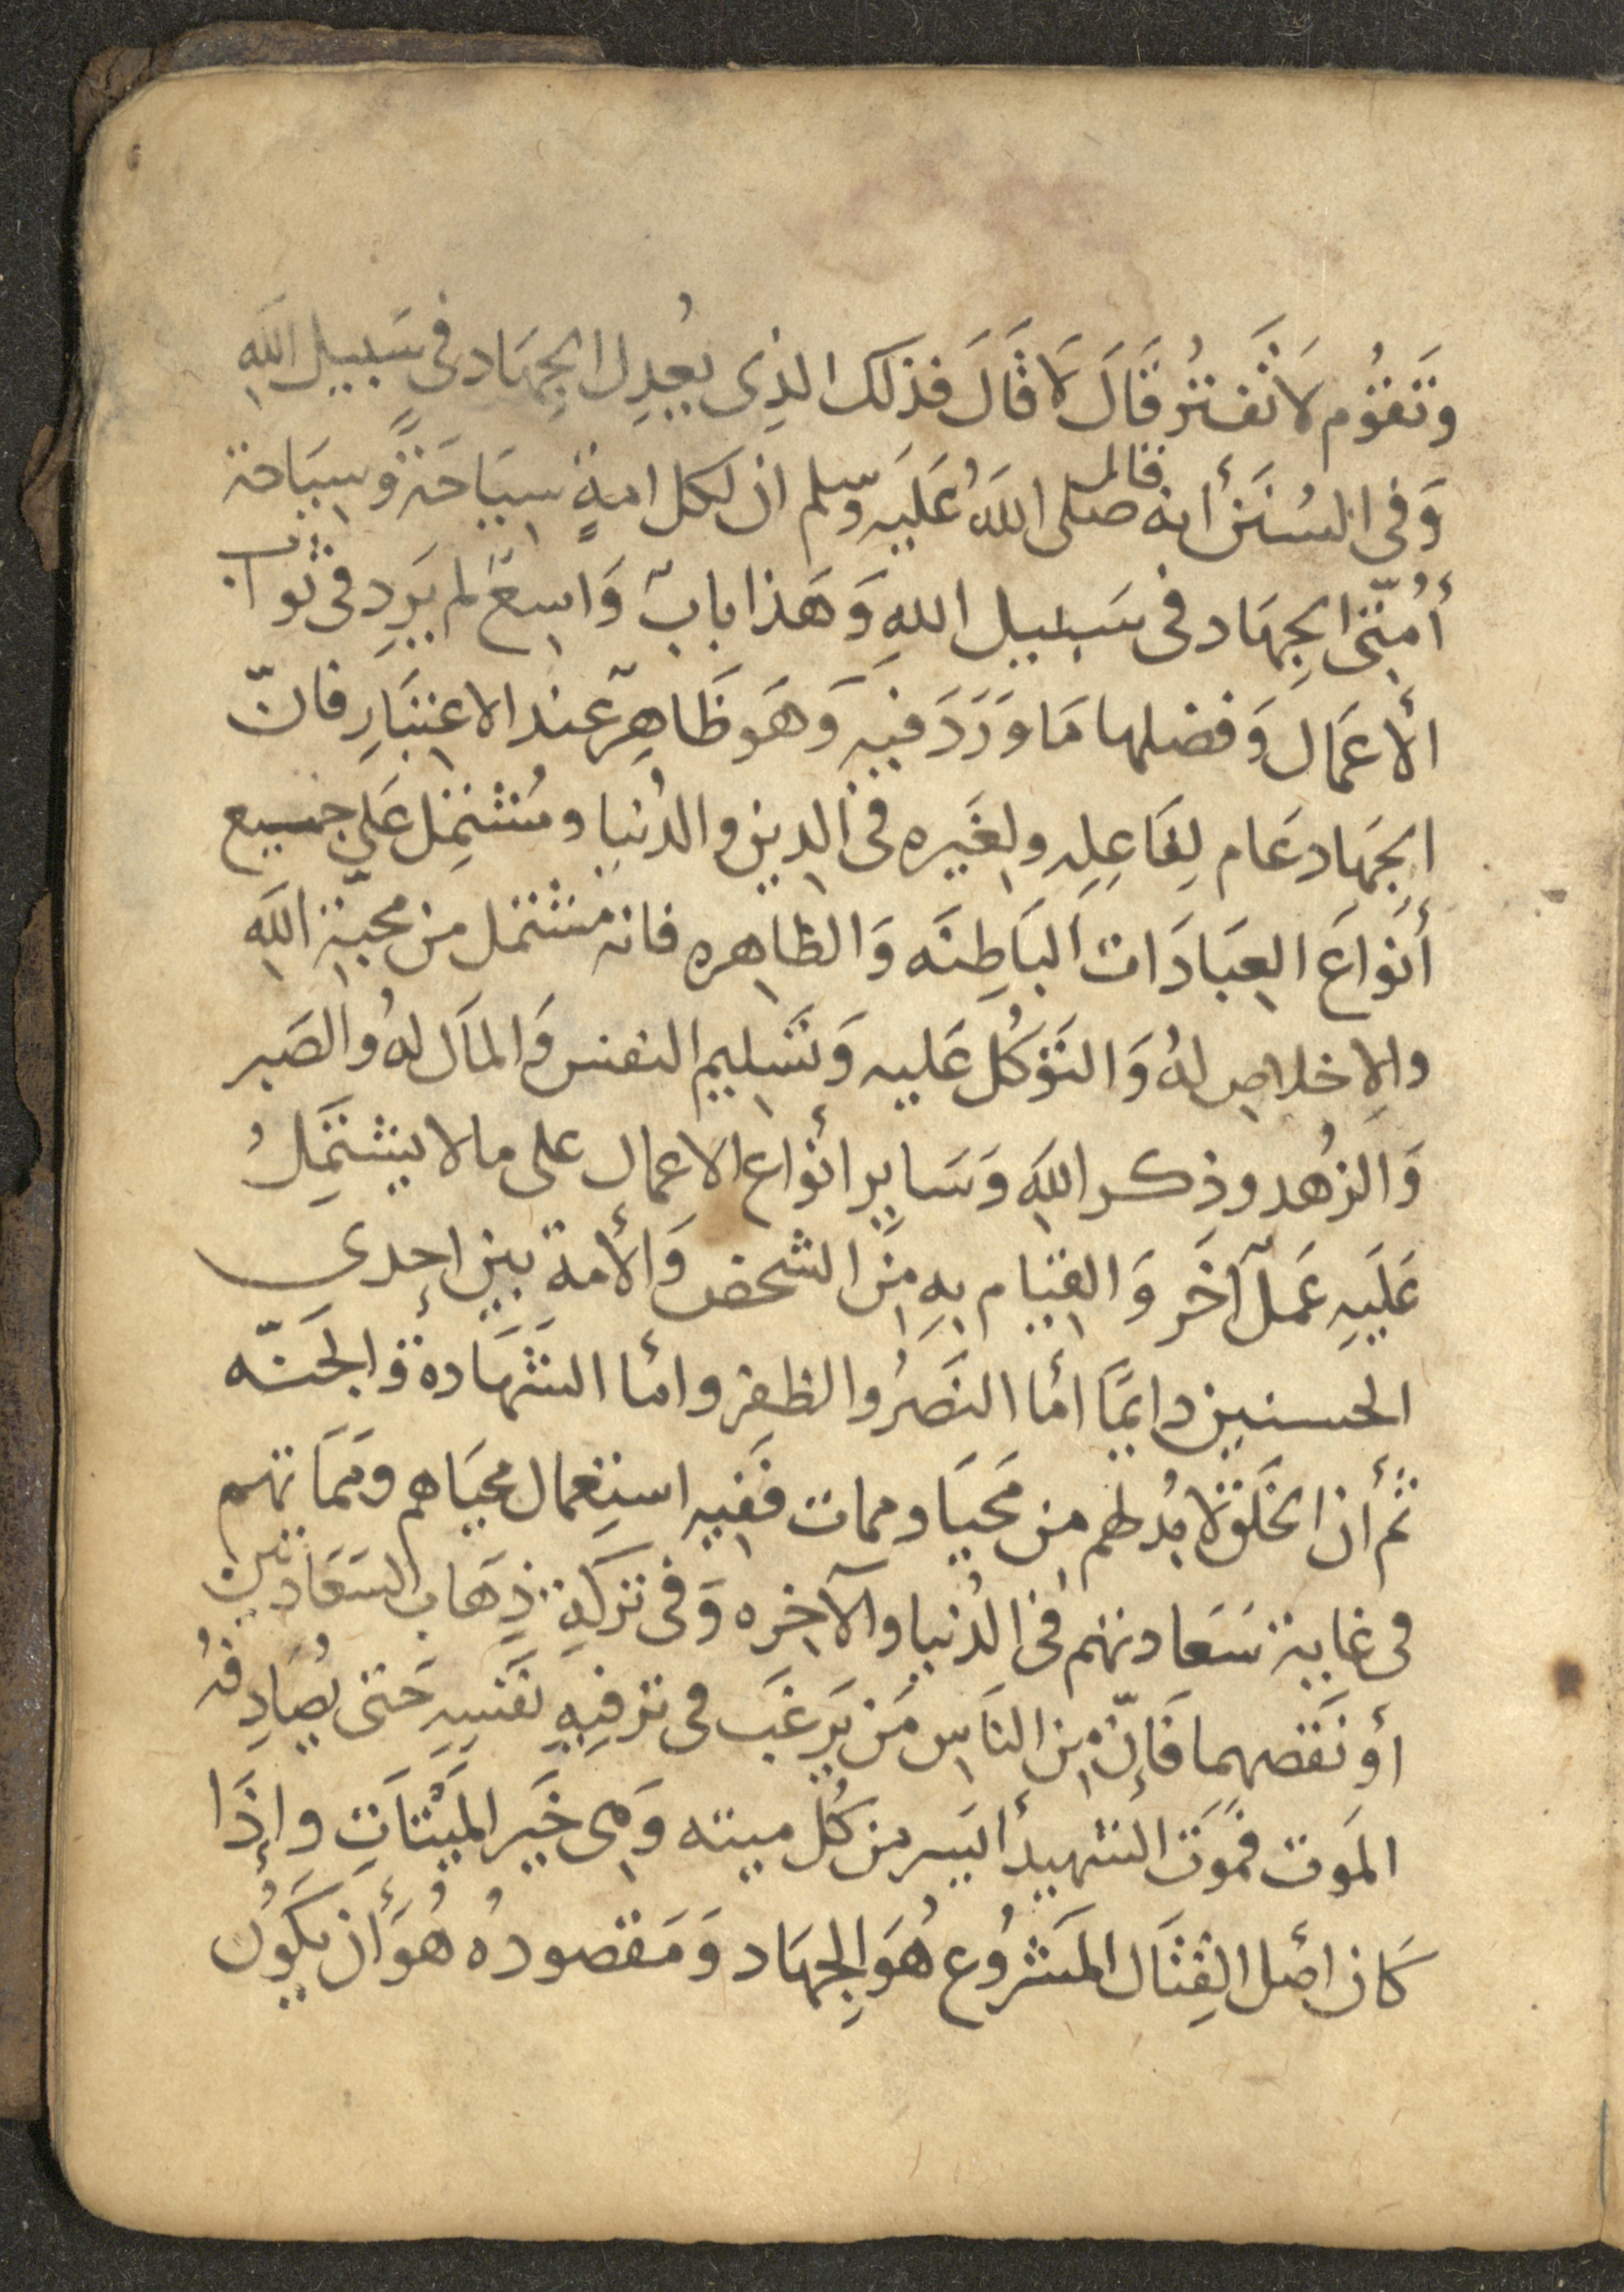 وَتَقوُم لاَ تَفتُر قَالَ لاَ قَالَ فذلَك الذِى يعُدِل الجِهَاد فى سَبيل اللهِ
وَفى السُنَن أنه قال صلى اللهُ عَليَه وسلم ان لكل امةٍ سِيَاحَةً وسِيَاحة
أُمتّىِ الجِهَاد فى سَبيل اللهِ وَهَذا بابٌ وَاسِعٌ لم يَرِد فى ثواب
الأعمَال وَفضلها مَا وَرَدَ فيه وَهوَ ظَاهِرٌ عند الاعِتبَارِ فانّ
الجِهَاد عَام لِفَاعِلِه ولِغَيره فى الدِين والدُنيا ومُشتمِل عَلي جميع
أنوَاعَ العِبَادَات البَاطِنَه وَالظاهِره فانه مشتمل من محبّةِ اللهِ
والاِخلاصِ لهُ وَالتَوَكُل عَليه وَتَسِليم النفس وَالماَل لهُ والصَبر
وَالزُهد وذكر اللهِ وَسَايِر أنواع الاعمال على مالا يشتَمِلُ
عَليَهِ عَملٌ آخَر وَالقِيَام بِهِ مِنَ الشخص وَالأمةِ بين إحدى
الحسنيين دايمًا أما النَصَرُ والظفر وأما الشَهَادة والجَنّه
ثم أن الخَلَق لا بُد لهم مِن مَحيَا وممات فَفيِه استِعمال محيَاهم ومَمَاتهم
فى غاية سَعَادتهم فى الدُنيا والآخِره وَفى تركِهِ ذِهَاب السَعَادتين
أو نَقصهما فَإنّ مِن الناَسِ مَن يَرغَب فى ترفِيِهِ نَفسِهِ حَتى يُصَادِفهُ
الموَت فموَت الشهيد أيسَر من كُل ميته وَهِى خَير المَيْتَاَتِ وإذَا
كَان اصل القِتَال المَشرُوع هُوَ الجِهَاد وَمَقصودهُ هُوَ أن يَكوُن